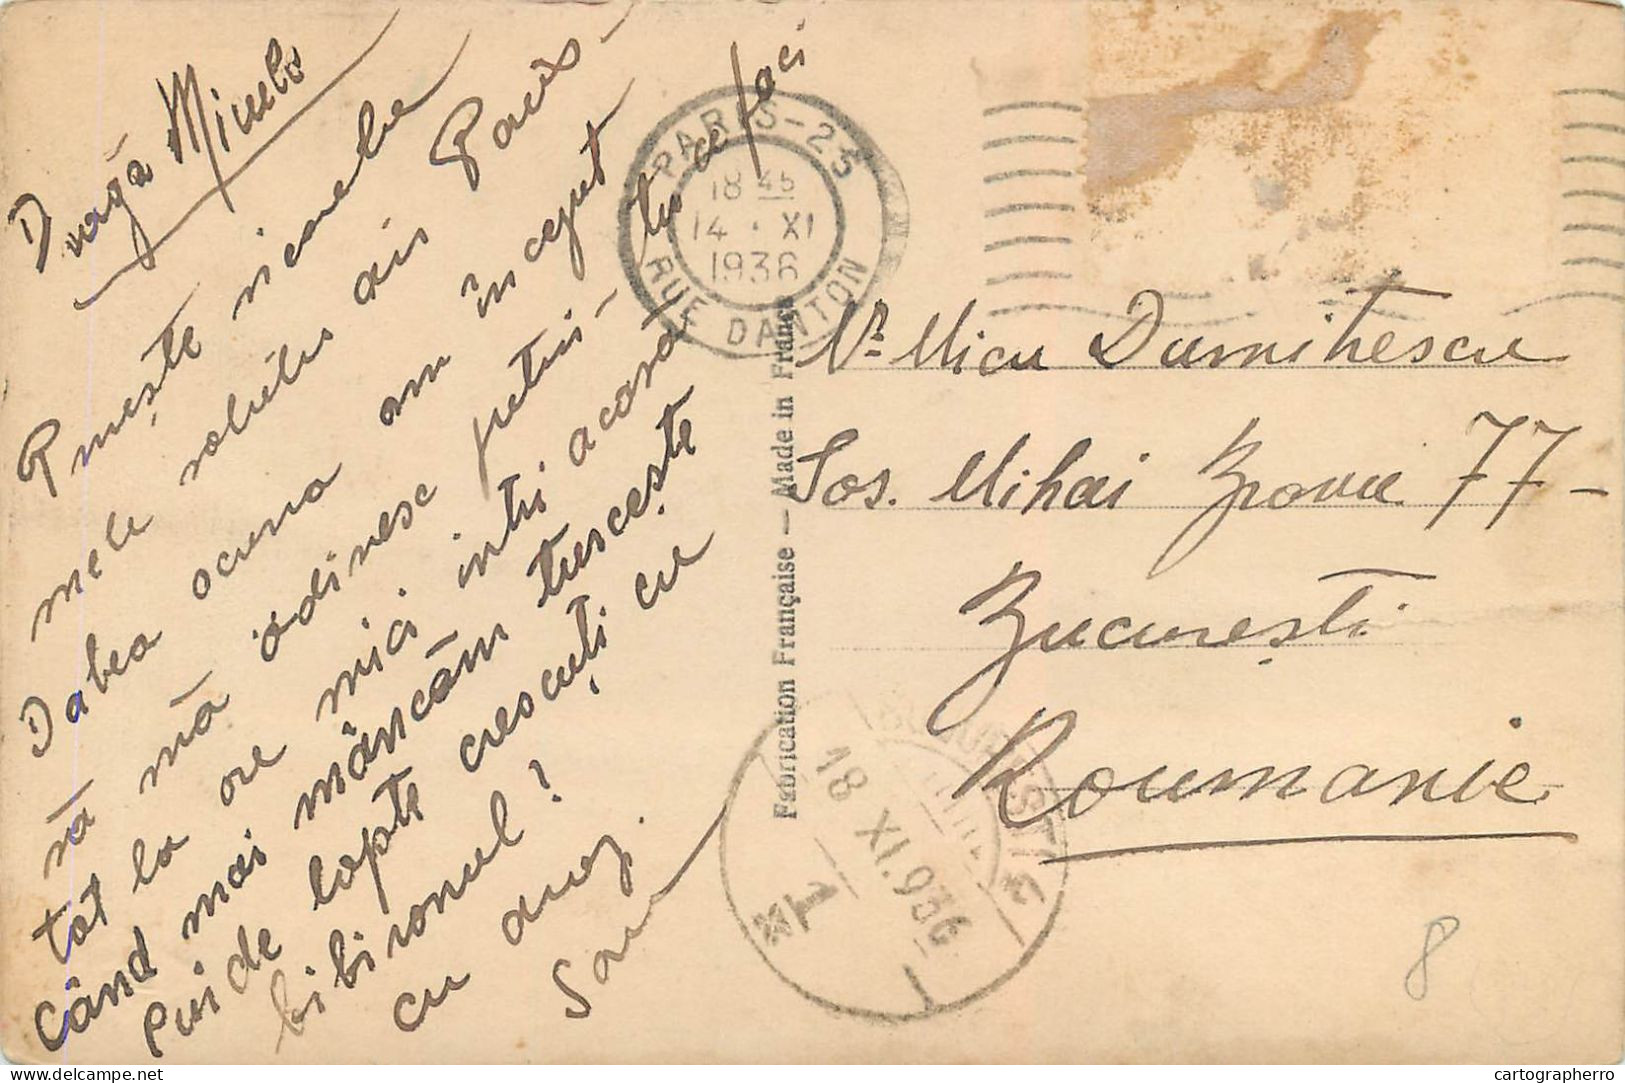 Dragă Miculo
Primește sicuele
mele salutu din Paris -
Dabea acuma am început
să mă odinesc puțin - tu ce faci
tot la ore mici intri acasă
când mai mâncăm turcește
pui de lapte crescuți cu
bibironul?
cu drag.
San
PARIS-25
18 45
14 · XI
1936
RUE DANTON
Fabrication Française — Made in France
Micu Dumitrescu
Sos. Mihai Bravu 77 -
București
Roumanie
BUCUREȘTI
18 XI.936
* 1
8
delcampe.net
cartographerro